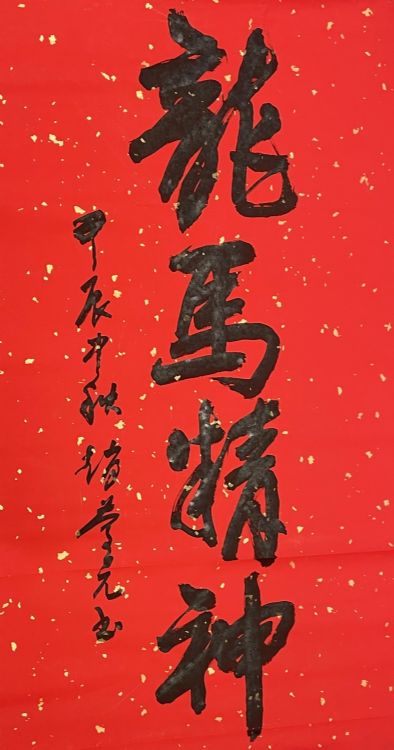 龍馬精神
甲辰中秋趙學元书